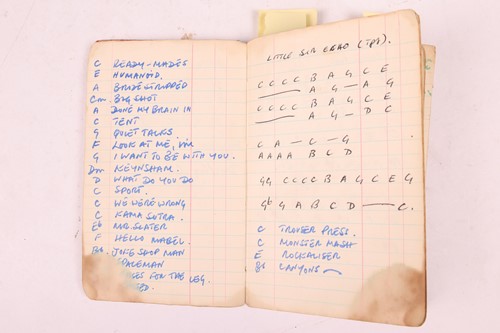 C READY-MADES
E HUMANOID.
A BRIDESTRIPPED
Cm BIG SHOT
A DONE MY BRAIN IN
C TENT
G QUIET TALKS
F LOOK AT ME, I'M
G I WANT TO BE WITH YOU.
Dm KEYNSHAM.
D WHAT DO YOU DO
C SPORT.
C WE WERE WRONG
C KAMA SUTRA.
Eb MR. SLATER
F HELLO MABEL.
Bb. JOKE SHOP MAN
SPACEMAN
FOR THE LEG.
LITTLE SIR ECHO (TPT).
C C C C B A G C E
A G — A G
C C C C B A G C E
A G — D C
C A — C — G
A A A A B C D
C C C C B A G C E G
G A B C D — C.
C TROUSER PRESS.
C MONSTER MASH
E ROCKALISER
CANYONS